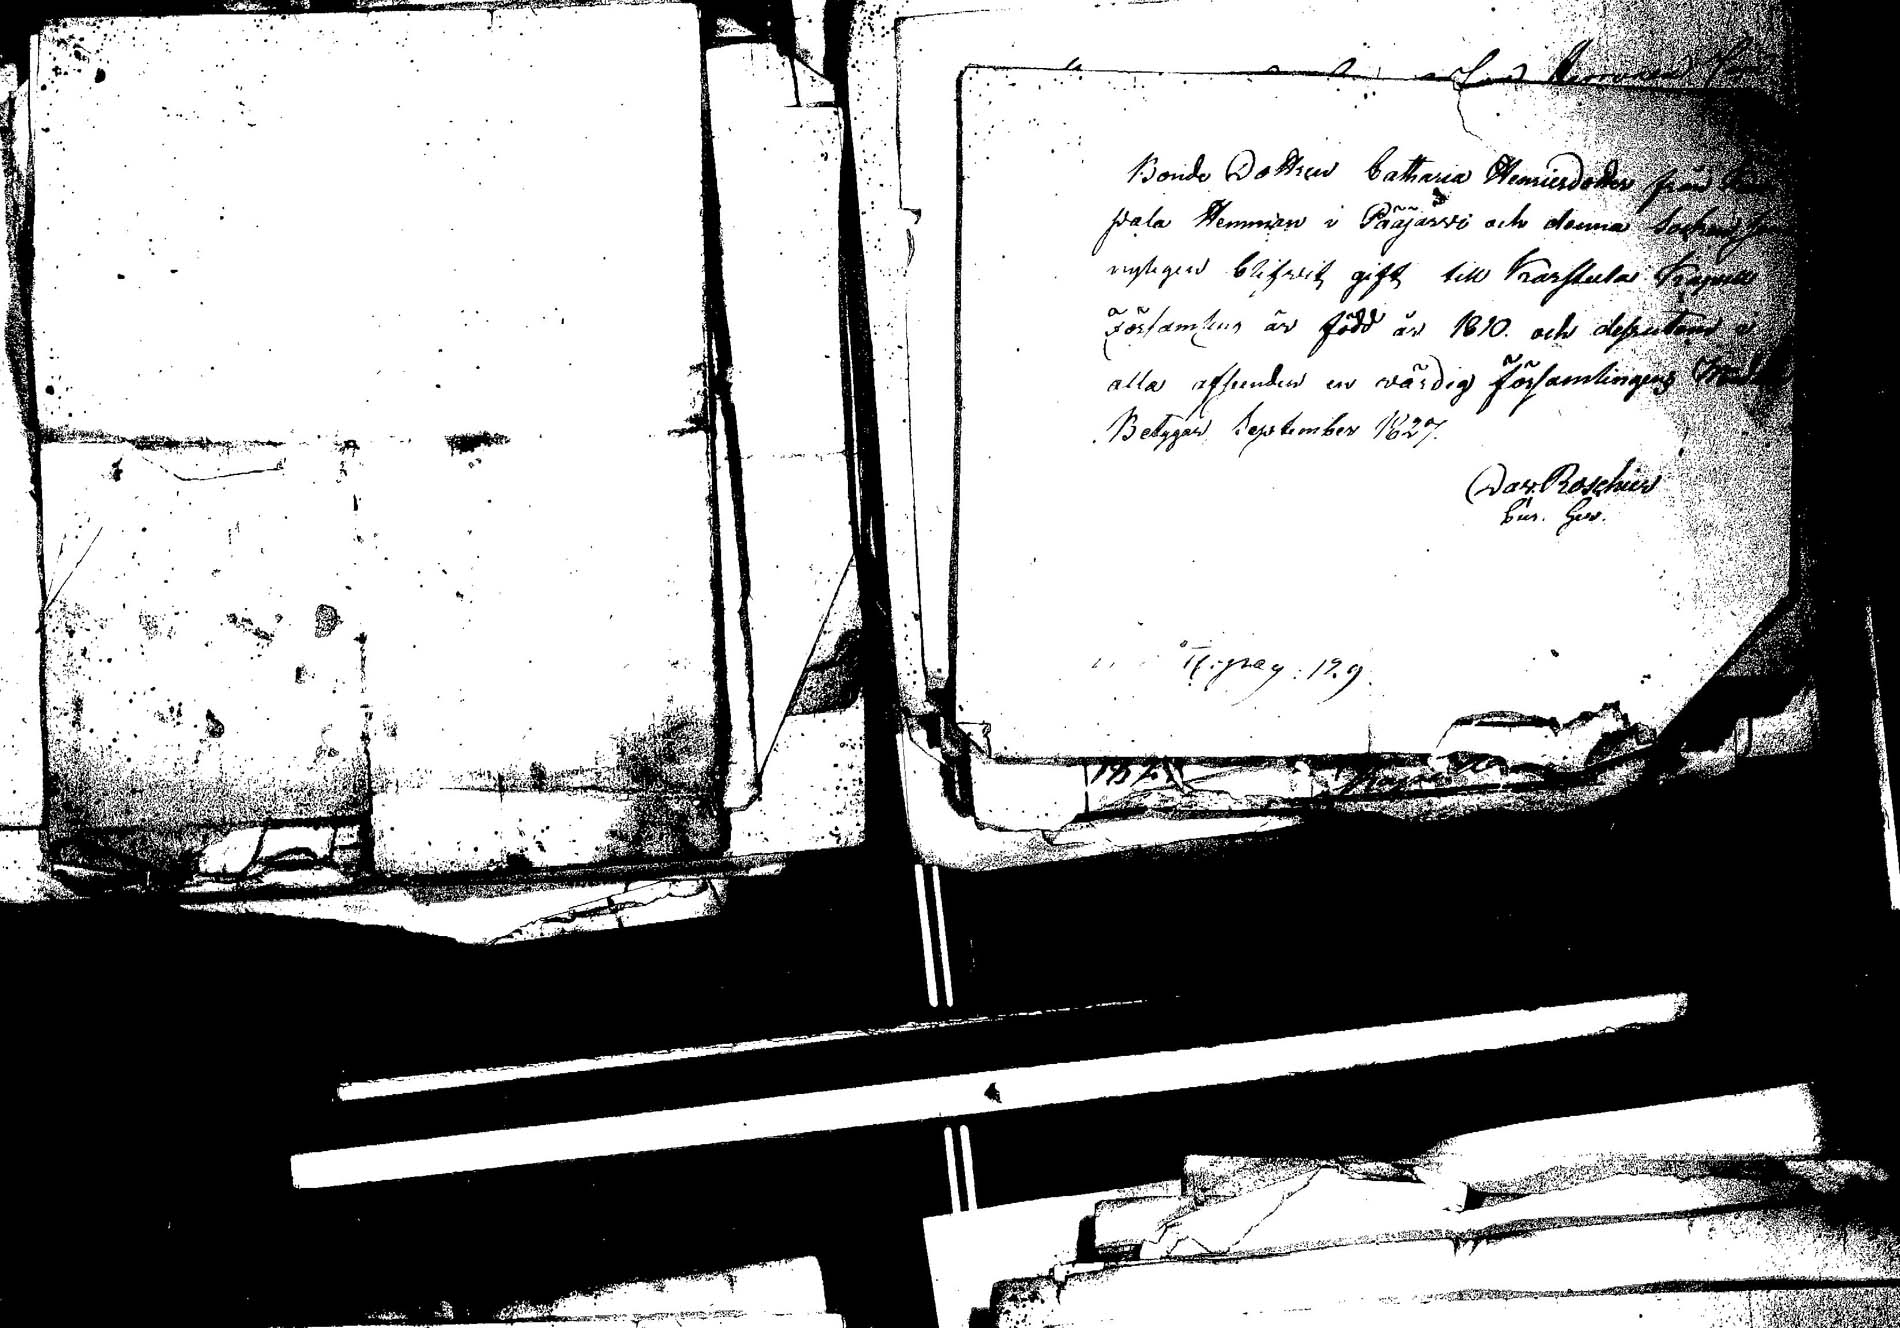 Hemman
Bonde Dottren Catharina Henricsdotter från
pala Hemman i Pääjärvi och denna Sochen som
nyligen blifvit gift till Karstula Kapell
Församling är född år 1810. och dessutom i
alla afseenden en värdig församlingens
Betygar September 1827.
Dav. Roschier
pag. 129